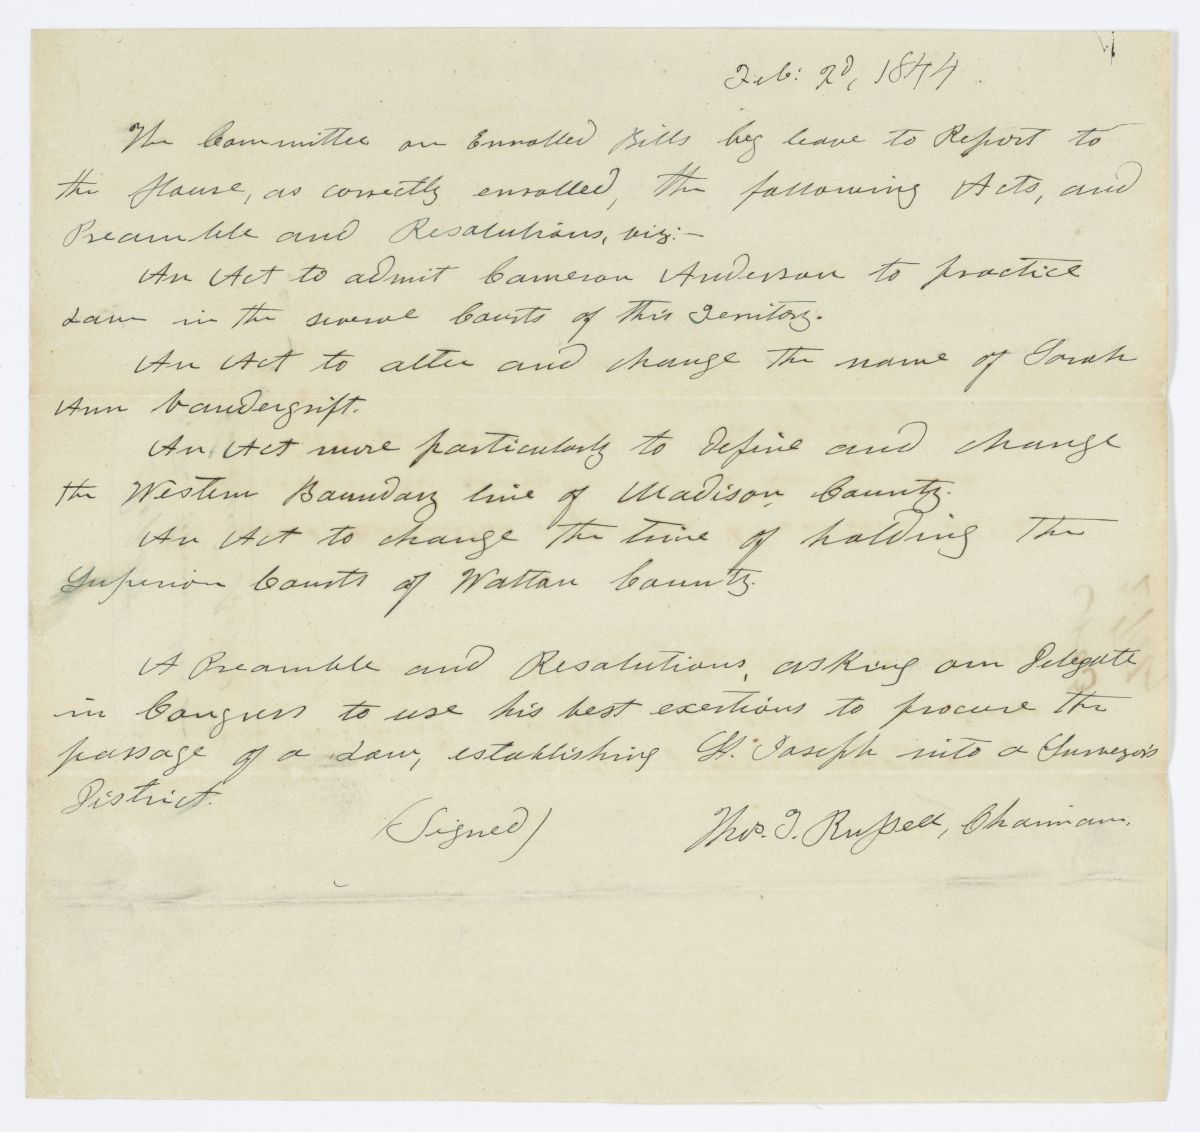 Feb: 2d, 1844
The Committee on Enrolled Bills beg leave to Report to
the House, as correctly enrolled, the following Acts, and
Preamble and Resolutions, viz:—
An Act to admit Cameron Anderson to practice
Law in the several Courts of this Territory.
An Act to alter and change the name of Sarah
Ann Vandergrift.
An Act more particularly to define and change
the Western Boundary line of Madison County.
An Act to change the time of holding the
Superior Courts of Walton County.
A Preamble and Resolutions, asking our Delegate
in Congress to use his best exertions to procure the
passage of a Law, establishing St. Joseph into a Surveyor's
District.
(Signed) Thos. T. Russell, Chairman.